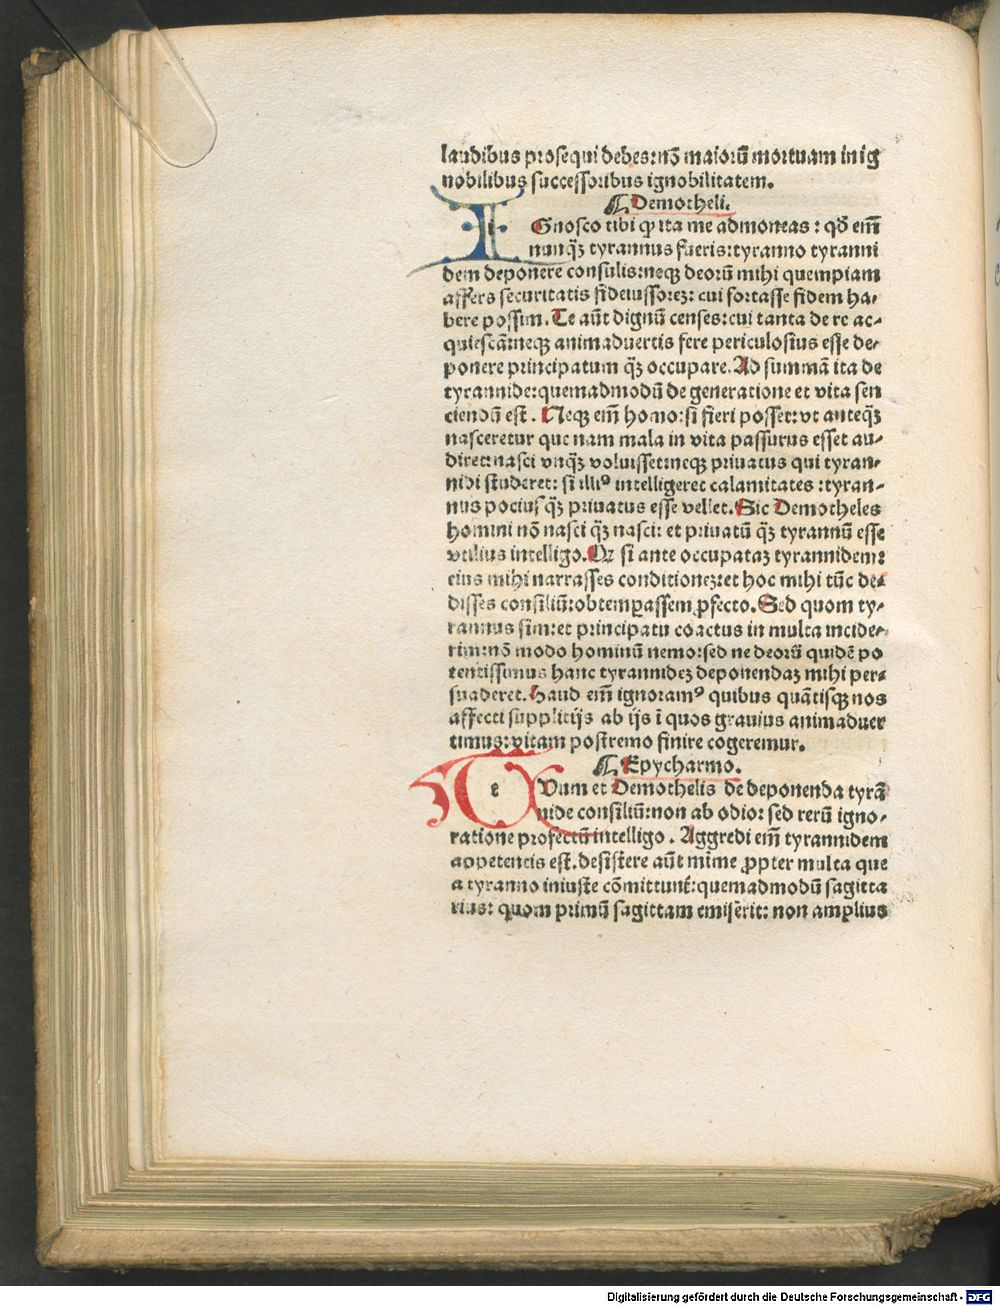 laudibus prosequi debes: nō maiorū mortuam in ig
nobilibus successoribus ignobilitatem.
¶ Demotheli.
IGnosco tibi ꝙ ita me admoneas : qđ em̄
nunqꝫ tyrannus fueris: tyranno tyranni
dem deponere consulis: neqꝫ deorū mihi quempiam
affers securitatis fideiussoreꝫ: cui fortasse fidem ha⸗
bere possim. Te aūt dignū censes: cui tanta de re ac⸗
quiescā: neqꝫ animaduertis fere periculosius esse de⸗
ponere principatum qꝫ occupare. Ad summā ita de
tyrannide: quemadmodū de generatione et vita sen
ciendū est . Neqꝫ em̄ homo: si fieri posset: vt anteqꝫ
nasceretur que nam mala in vita passurus esset au⸗
diret: nasci vnqꝫ voluisset: neqꝫ priuatus qui tyran⸗
nidi studeret: si illiꝰ intelligeret calamitates : tyran⸗
nus pocius qꝫ priuatus esse vellet. Sic Demotheles
homini nō nasci qꝫ nasci: et priuatū qꝫ tyrannū esse
vtilius intelligo. Qꝛ si ante occupataꝫ tyrannidem:
eius mihi narrasses conditioneꝫ: et hoc mihi tūc de⸗
disses consiliū: obtemꝑassem ꝓfecto. Sed quom ty⸗
rannus sim: et principatu coactus in multa incide⸗
rim: nō modo hominū nemo: sed ne deorū quidē po
tentissimus hanc tyrannideꝫ deponendaꝫ mihi per⸗
suaderet. Haud em̄ ignoramꝰ quibus quātisqꝫ nos
affecti supplicijs ab ijs ī quos grauius animaduer
timus: vitam postremo finire cogeremur.
¶ Epycharmo.
TVum et Demothelis de deponenda tyrā
nide consiliū: non ab odio: sed rerū igno⸗
ratione profectū intelligo . Aggredi em̄ tyrannidem
appetentis est. desistere aūt mime ꝓpter multa que
a tyranno iniuste cōmittunt̄: quemadmodū sagitta
rius: quom primū sagittam emiserit: non amplius
Digitalisierung gefördert durch die Deutsche Forschungsgemeinschaft - DFG